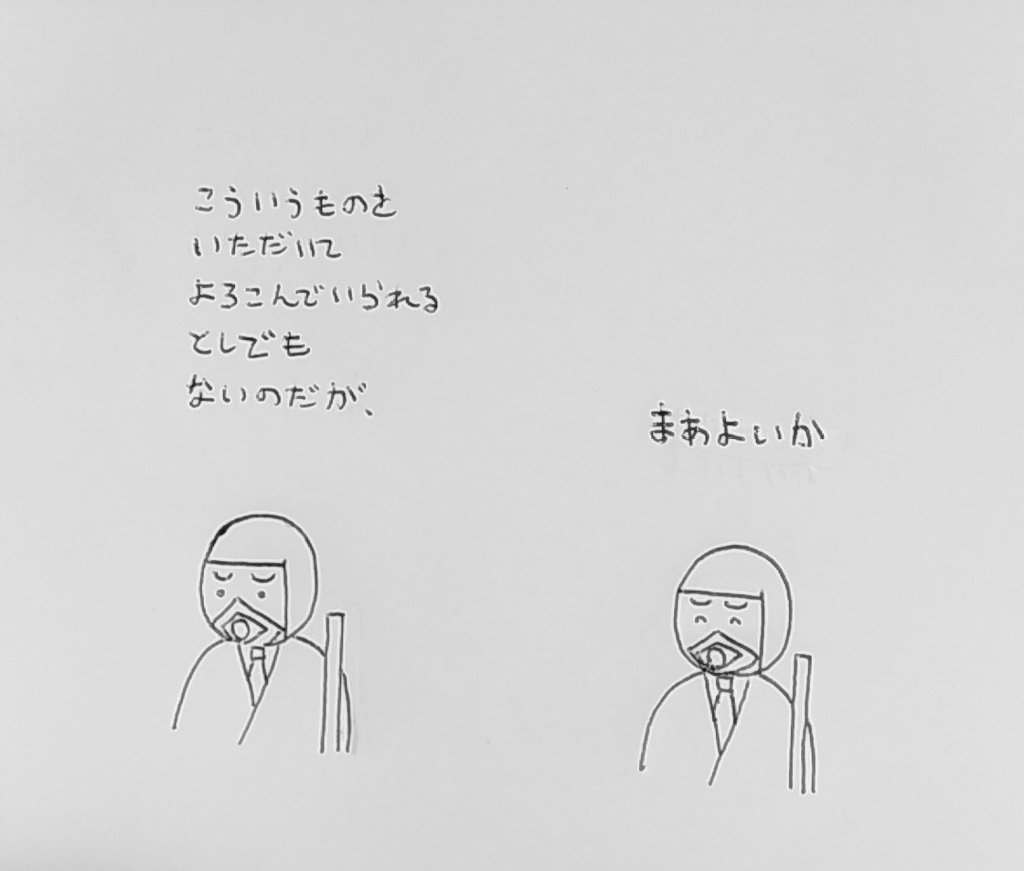 こういうものを
いただいて
よろこんでいられる
としでも
ないのだが、
まあよいか